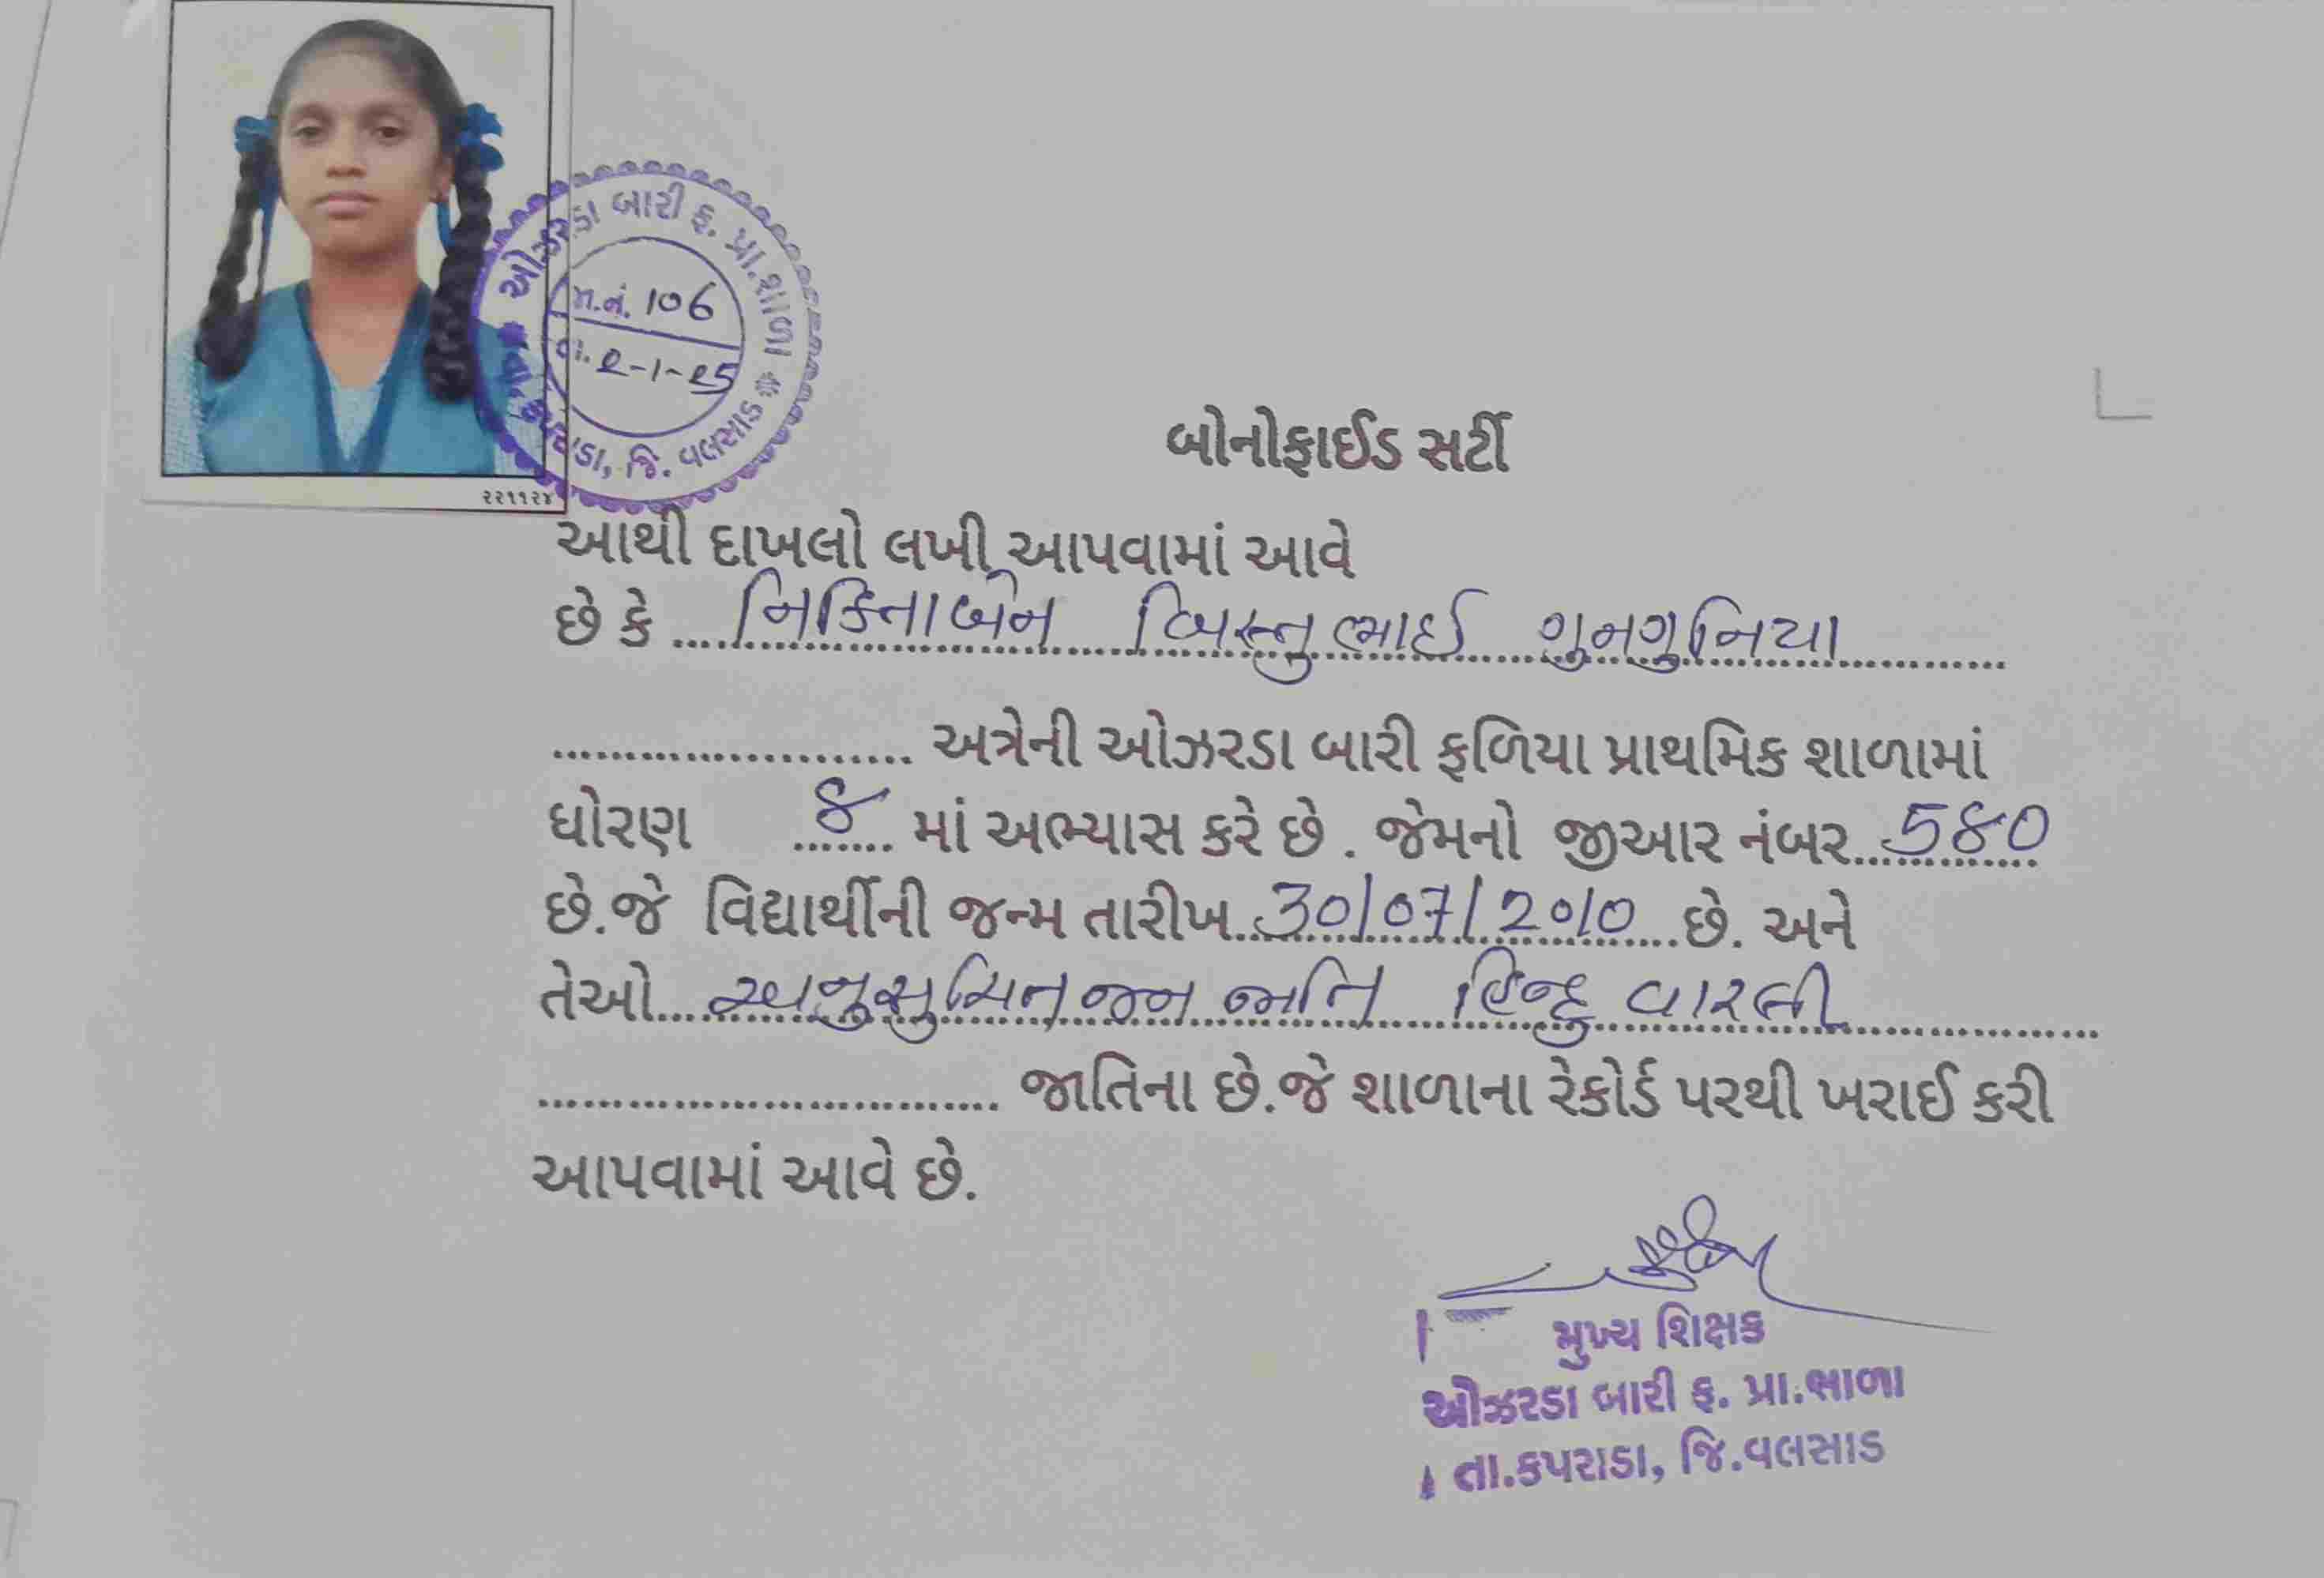 ઓઝરડા બારી ફ. પ્રા.શાળા
જા.નં. 106
તા. ૨-૧-૨૫
કપરાડા, જિ. વલસાડ
૨૨૧૧૨૪
બોનોફાઈડ સર્ટી
આથી દાખલો લખી આપવામાં આવે
છે કે નિકિતાબેન બિસ્તુભાઈ ગુનગુનિયા
અત્રેની ઓઝરડા બારી ફળિયા પ્રાથમિક શાળામાં
ધોરણ ૪ માં અભ્યાસ કરે છે . જેમનો જીઆર નંબર 580
છે.જે વિદ્યાર્થીની જન્મ તારીખ 30/07/2010 છે. અને
તેઓ અનુસુચિત જન જાતિ હિન્દુ વારલી
જાતિના છે.જે શાળાના રેકોર્ડ પરથી ખરાઈ કરી
આપવામાં આવે છે.
મુખ્ય શિક્ષક
ઓઝરડા બારી ફ. પ્રા.શાળા
તા.કપરાડા, જિ.વલસાડ